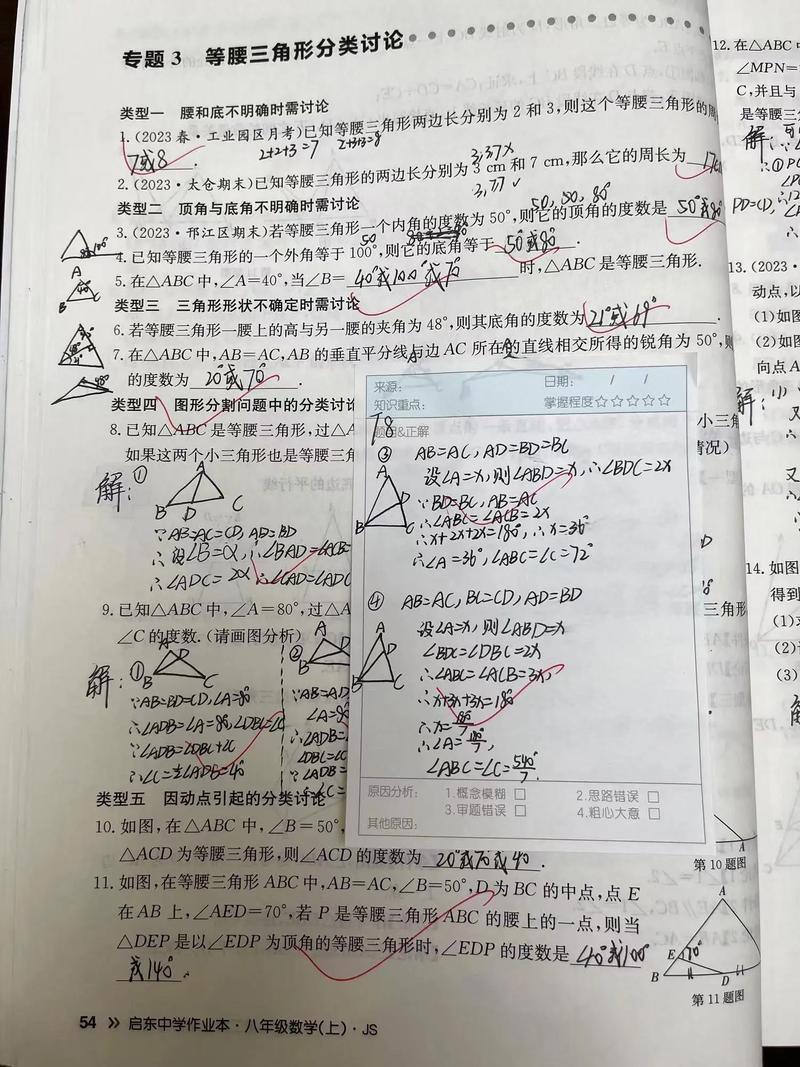 专题 3 等腰三角形分类讨论
类型一 腰和底不明确时需讨论
1. (2023 春·工业园区月考)已知等腰三角形两边长分别为 2 和 3,则这个等腰三角形的周
7或8.
2+2+3=7 2+3+3=8
3,3,7×
2. (2023·太仓期末)已知等腰三角形的两边长分别为 3 cm 和 7 cm,那么它的周长为 17c
3,7,7✓
类型二 顶角与底角不明确时需讨论
50,50,80°
3. (2023·邗江区期末)若等腰三角形一个内角的度数为 50°,则它的顶角的度数是 50°或80°
4. 已知等腰三角形的一个外角等于 100°,则它的底角等于 50°或80°.
5. 在△ABC 中,∠A=40°,当∠B= 40°或100°或70° 时,△ABC 是等腰三角形.
类型三 三角形形状不确定时需讨论
6. 若等腰三角形一腰上的高与另一腰的夹角为 48°,则其底角的度数为 21°或69°
7. 在△ABC 中,AB=AC,AB 的垂直平分线与边 AC 所在的直线相交所得的锐角为 50°,则
的度数为 20°或70°.
类型四 图形分割问题中的分类讨论
8. 已知△ABC 是等腰三角形,过△A
如果这两个小三角形也是等腰三角
解:①
A
B D C
∵AB=AC=CD,AD=BD
∴设∠B=α,∴∠BAD=∠ACB=
∴∠ADC=2α,∴∠CAD=∠ADC
9. 已知△ABC 中,∠A=80°,过△A
∠C 的度数.(请画图分析)
解:①
A D
B C
∵AB=BD=CD,∠A=80°
∴∠ADB=∠A=80°,∠DBC=∠C
∵∠ADB=∠DBC+∠C
∴∠C=½∠ADB=40°
②
A D
B
∵AB=AD
∠A=80°
∴∠ADB=
∠DBC=∠C
∵∠ADB=
∴∠C=
来源:
日期: / /
知识重点:
掌握程度☆☆☆☆☆
题目&正解
T8
③ AB=AC,AD=BD=BC
设∠A=x,则∠ABD=x,∴∠BDC=2x
∵BD=BC,AB=AC
∴∠ABC=∠ACB=2x
∴x+2x+2x=180°,∴x=36°
∴∠A=36°,∠ABC=∠C=72°
A
D
B C
④ AB=AC,BC=CD,AD=BD
设∠A=x,则∠ABD=x
∠BDC=∠DBC=2x
∴∠ABC=∠ACB=3x,
∴x+3x+3x=180°
∴x=180°/7
∴∠A=180°/7,
∠ABC=∠C=540°/7.
A
D
B C
原因分析: 1.概念模糊 □ 2.思路错误 □
3.审题错误 □ 4.粗心大意 □
其他原因:
类型五 因动点引起的分类讨论
10. 如图,在△ABC 中,∠B=50°,
△ACD 为等腰三角形,则∠ACD 的度数为 20°或70°或40°.
A
第 10 题图
11. 如图,在等腰三角形 ABC 中,AB=AC,∠B=50°,D 为 BC 的中点,点 E
在 AB 上,∠AED=70°,若 P 是等腰三角形 ABC 的腰上的一点,则当
△DEP 是以∠EDP 为顶角的等腰三角形时,∠EDP 的度数是 40°或100°
或140°.
A
E 70°
B D
第 11 题图
54 》 启东中学作业本·八年级数学(上)·JS
12. 在△ABC 中
∠MPN=
C,并且与
是等腰三角
解:
∴①PC
PD=CD,
13. (2023·
动点,以
(1)如图
(2)如图
向点 A
解:
小三角
情况)
14. 如图
得到
三角形
(1)求
(2)
(3)
解